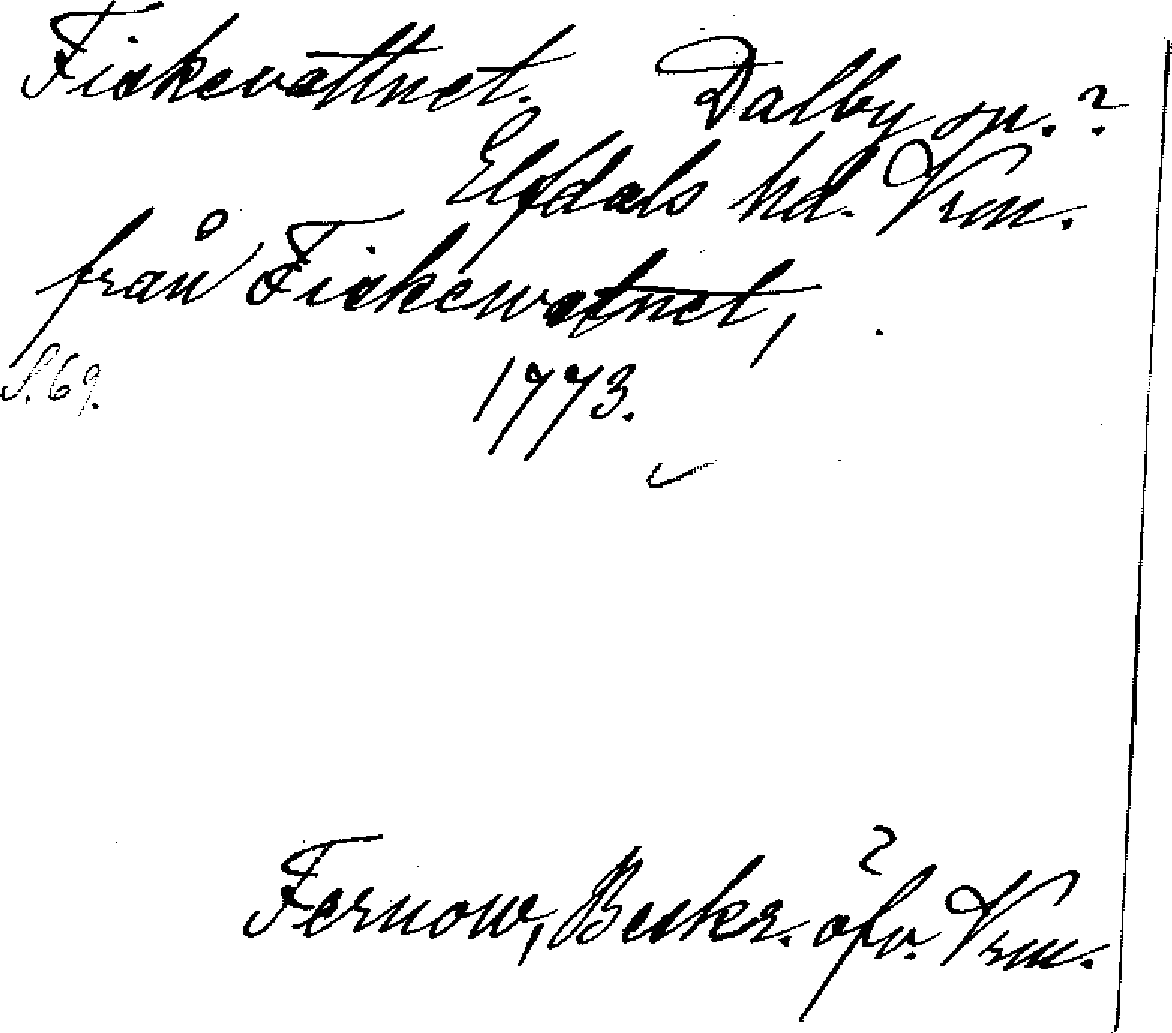 Fiskevattnet. Dalby sn.?
Elfdals hd. Vrm.
från Fiskewatnet,
S. 69. 1773.
Fernow, Beskr. öfv. Vrm.